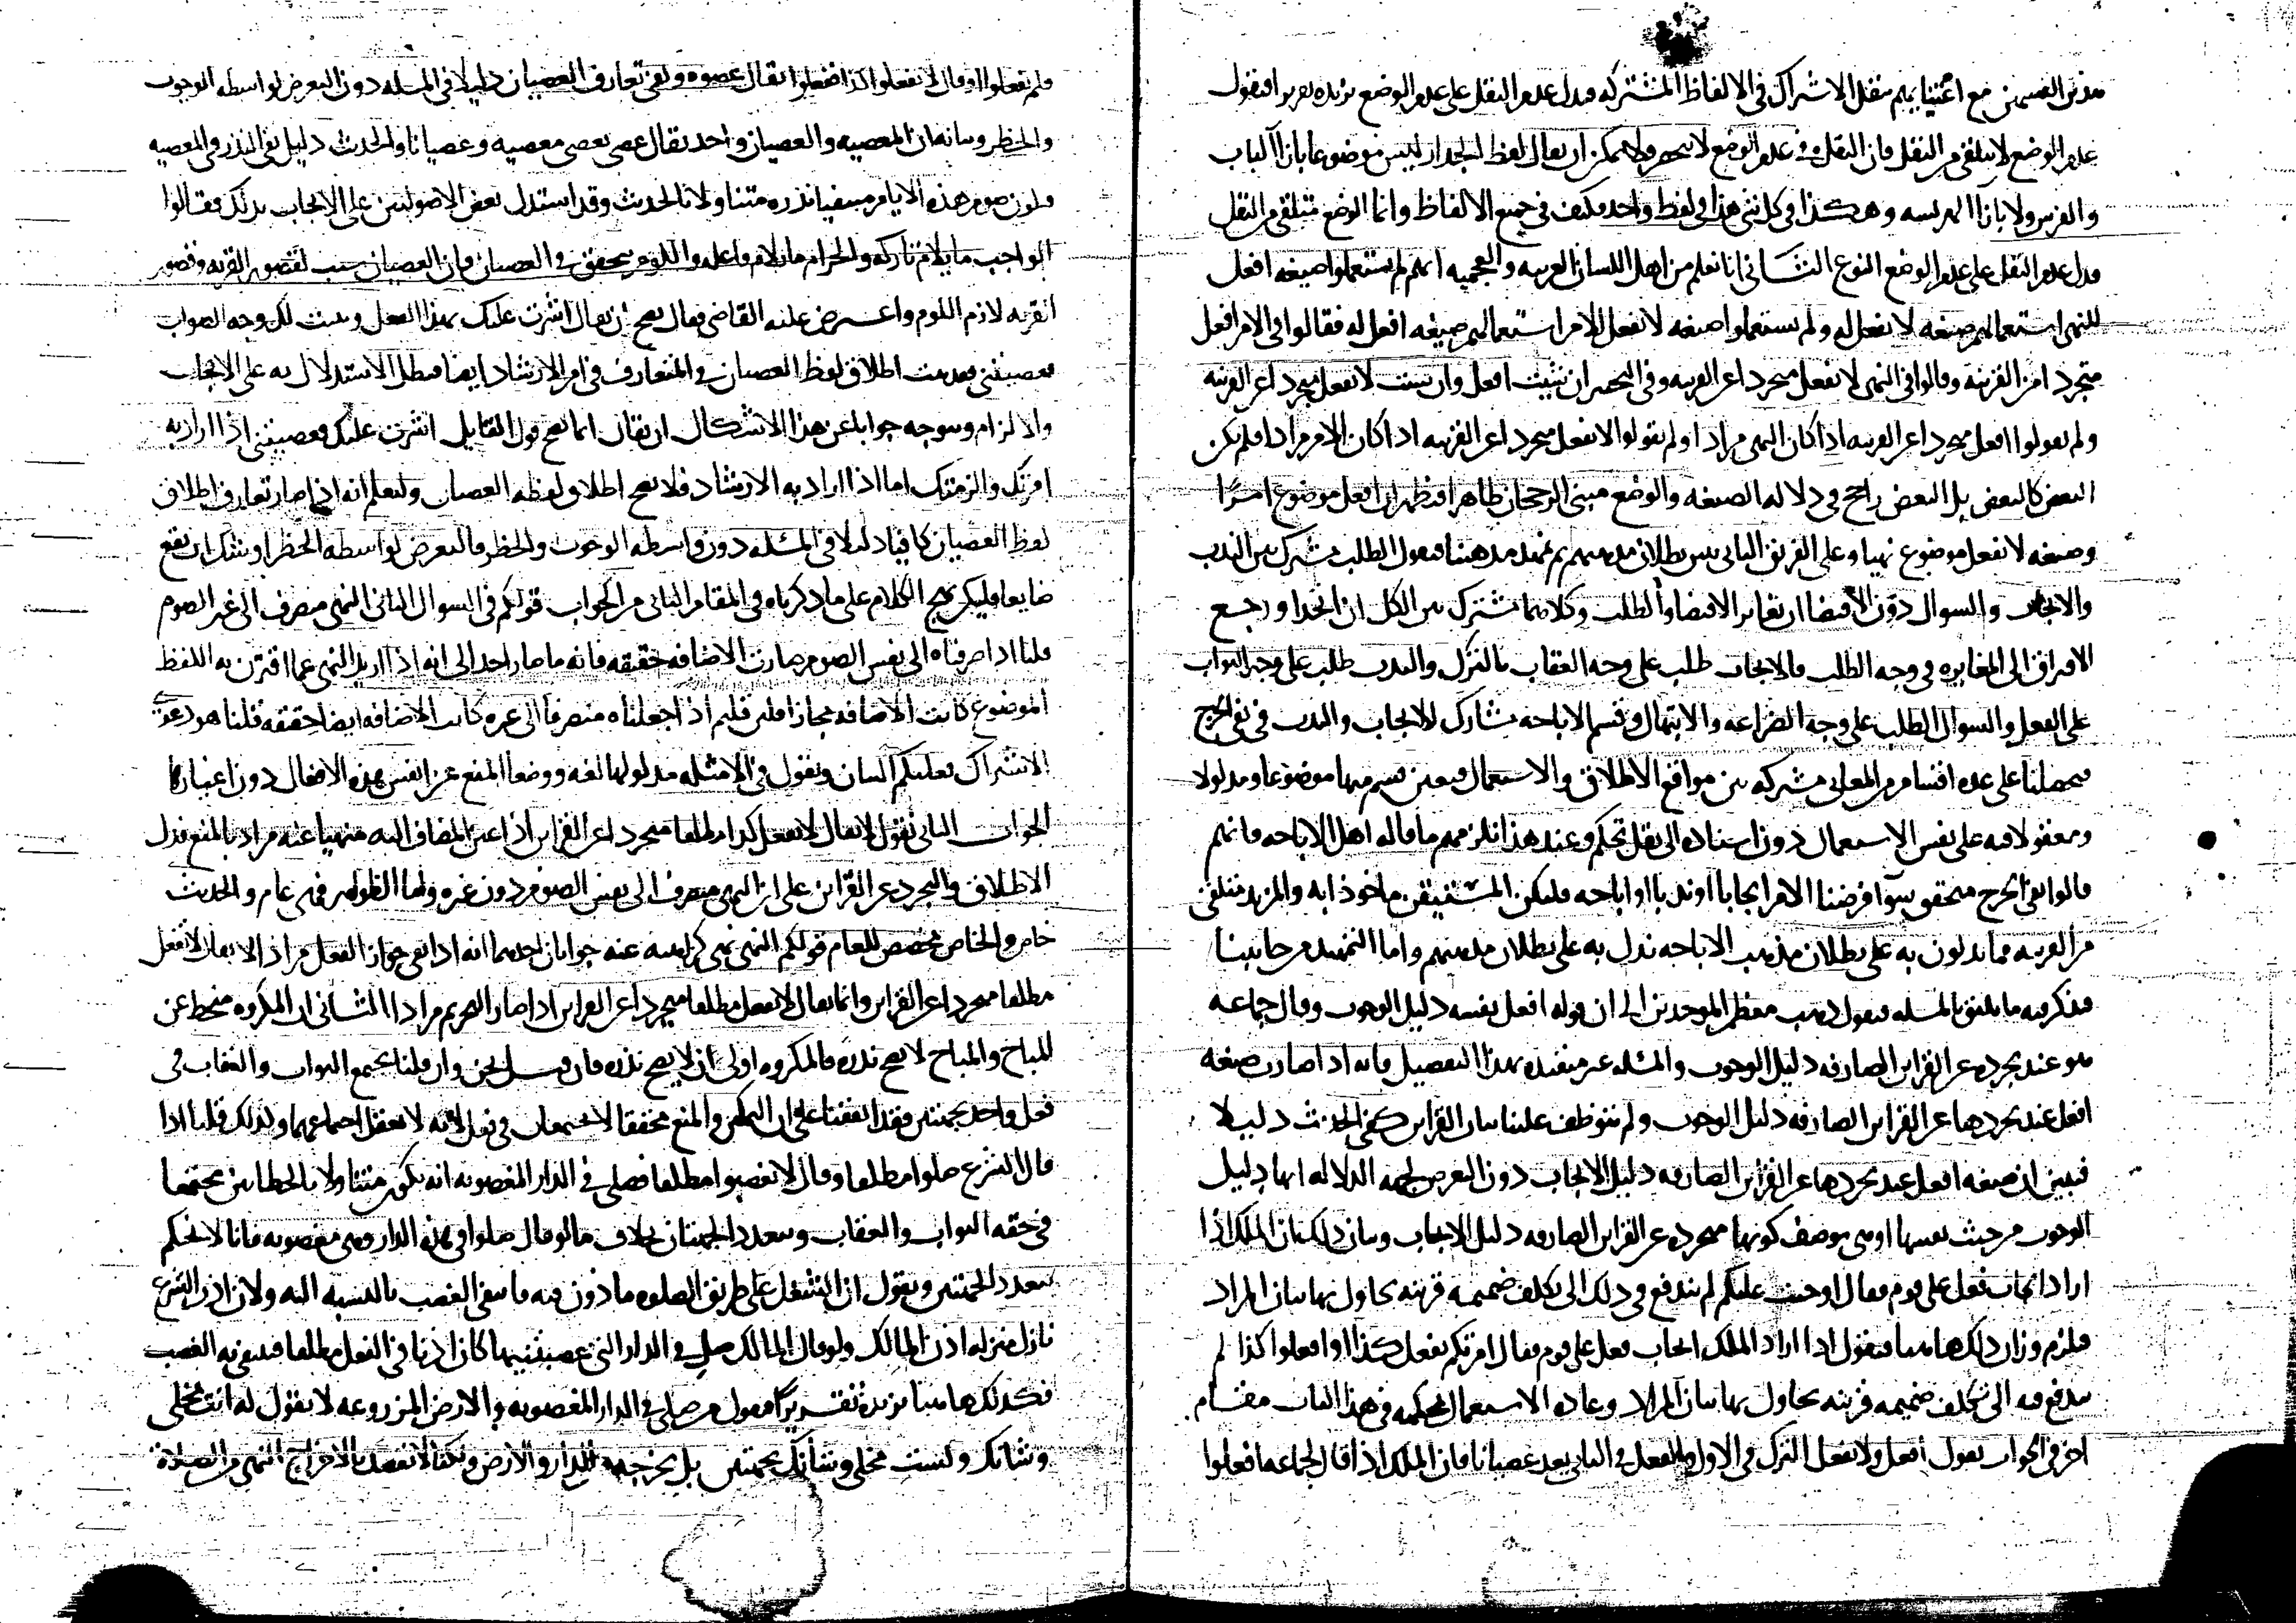 هذين القسمين مع اعتنايهم بنقل الاشتراك في الالفاظ المشتركه فدل عدم النقل على عدم الوضع نزيده تقريرا فنقول
عدم الوضع لا يتلقى من النقل فان النقل في عدم الوضع لا ينحصر ولا يمكن ان يقال لفظ الجدار ليس موضوعا بازا الباب
والفرس ولا بازا الهريسه وهكذا في كل شي هذا في لفظ واحد فكيف في جميع الالفاظ وانما الوضع متلقى من النقل
فدل عدم النقل على عدم الوضع النوع الثاني انا نعلم من اهل اللسان العربيه والعجميه انهم لم يستعملوا صيغه افعل
للنهي استعمالهم صيغه لا تفعل له ولم يستعملوا صيغه لا تفعل للامر استعمالهم صيغه افعل له فقالوا في الامر افعل
متجردا من القرينه وقالوا في النهي لا تفعل متجردا عن القرينه وفي التخيير ان شيت افعل وان شيت لا تفعل متجردا عن القرينه
ولم يقولوا افعل متجردا عن القرينه اذا كان النهي مرادا ولم يقولوا لا تفعل متجردا عن القرينه اذا كان الامر مرادا فلم يكن
البعض كالبعض بل البعض راجح في دلاله الصيغه والوضع مبنى الرجحان ظاهرا فظهر ان افعل موضوع امرا
وصيغه لا تفعل موضوع نهيا وعلى الفريق الثاني نبين بطلان مذهبهم ثم نمهد مذهبنا فنقول الطلب مشترك بين الندب
والايجاب والسوال دون الاقتضا ان تغاير الاقتضا والطلب وكلاهما مشترك بين الكل ان اتحدا ورجع
الافتراق الى المغايره في وجه الطلب فالايجاب طلب على وجه العقاب بالترك والندب طلب على وجه الثواب
على الفعل والسوال الطلب على وجه الضراعه والابتهال وقسم الاباحه مشارك للايجاب والندب في نفي الحرج
فحصلنا على عده اقسام من المعاني مشتركه بين مواقع الاطلاق والاستعمال فتعيين قسم منها موضوعا ومدلولا
ومعقولا فيه على نفس الاستعمال دون اسناده الى نقل تحكم وعند هذا نلزمهم ما قاله اهل الاباحه فانهم
قالوا نفي الحرج متحقق سوا فرضنا الامر ايجابا او ندبا او اباحه فليكن المستيقن ماخوذا به والمزيد متلقى
من القرينه فما يدلون به على بطلان مذهب الاباحه ندل به على بطلان مذهبهم واما التمهيد من جانبنا
فنذكر فيه ما يليق بالمسله فنقول ذهب معظم الموحدين الى ان قوله افعل بنفسه دليل الوجوب وقال جماعه
هو عند تجرده عن القراين الصارفه دليل الوجوب والمسله غير مقيده بهذا التفصيل فانه اذا صارت صيغه
افعل عند تجردها عن القراين الصارفه دليل الوجوب ولم يتوظف علينا بيان القراين كفى الحديث دليلا
فتبين ان صيغه افعل عند تجردها عن القراين الصارفه دليل الايجاب دون التعرض لجهه الدلاله انها دليل
الوجوب من حيث نفسها او هي بوصف كونها متجرده عن القراين الصارفه دليل الايجاب وبيان ذلك ان الملك اذا
اراد ايجاب فعل على قوم فقال اوجبت عليكم لم يندفع في ذلك الى تكلف ضميمه قرينه يحاول بها بيان المراد
فلزم وزان ذلك هاهنا فنقول اذا اراد الملك ايجاب فعل على قوم فقال امرتكم بفعل كذا او افعلوا كذا لم
يندفع فيه الى تكلف ضميمه قرينه يحاول بها بيان المراد وعاده الاستعمال محكمه في هذا الباب مقام
اخر في الجواب نقول افعل ولا تفعل الترك في الاول والفعل في الثاني يعد عصيانا فان الملك اذا قال لجماعه افعلوا
فلم يفعلوا او قال لا تفعلوا كذا ففعلوا يقال عصوه وكفى تعارف العصيان دليلا في المسله دون التعرض لواسطه الوجوب
والحظر وبيانه ان المعصيه والعصيان واحد يقال عصى يعصي معصيه وعصيانا والحديث دليل نفي النذر في المعصيه
فيكون صوم هذه الايام منفيا نذره متناولا بالحديث وقد استدل بعض الاصوليين على الايجاب بذلك فقالوا
الواجب ما يلام تاركه والحرام ما يلام فاعله واللوم يتحقق في العصيان فان العصيان سبب لقصور القربه وقصور
القربه لازم اللوم واعترض عليه القاضي فقال يصح ان يقال اشرت عليك بهذا الفعل وبينت لك وجه الصواب
فعصيتني فقد ثبت اطلاق لفظ العصيان في المتعارف في امر الارشاد ايضا فبطل الاستدلال به على الايجاب
والالزام ويتوجه جوابا عن هذا الاشكال ان يقال انما يصح قول القايل اشرت عليك فعصيتني اذا اراد به
امرتك والزمتك اما اذا اراد به الارشاد فلا يصح اطلاق لفظه العصيان وليعلم انه اذا صار تعارف اطلاق
لفظ العصيان كافيا دليلا في المسله دون واسطه الوجوب والحظر فالتعرض لواسطه الحظر اوشك ان يقع
ضايعا فليكن نهج الكلام على ما ذكرناه في المقام الثاني من الجواب قولكم في السوال الثاني النهي منصرف الى غير الصوم
قلنا اذا صرفناه الى نفس الصوم صارت الاضافه حقيقه فانه ما صار احد الى انه اذا اريد النهي عما اقترن به اللفظ
الموضوع كانت الاضافه مجازا فلين قلتم اذا جعلناه منصرفا الى غيره كانت الاضافه ايضا حقيقه قلنا هو دعوى
الاشتراك فعليكم البيان ونقول في الامثله مدلولها لغه ووضعا المنع عن نفس هذه الافعال دون اغيارها
الجواب الثاني نقول لا يقال لا تفعل كذا مطلقا متجردا عن القراين اذا غير المضاف اليه منهيا عنه مرادا بالمنع فدل
الاطلاق والتجرد عن القراين على ان النهي منصرف الى نفس الصوم دون غيره واما الظواهر فهي عام والحديث
خاص والخاص مخصص للعام قولكم النهي نهي كراهيه عنه جوابان احدهما انه اذا بقي جواز الفعل مرادا لا يقال لا تفعل
مطلقا متجردا عن القراين وانما يقال لا تفعل مطلقا متجردا عن القراين اذا صار التحريم مرادا الثاني ان المكروه منحط عن
المباح والمباح لا يصح نذره فالمكروه اولى ان لا يصح نذره فان قيل نحن وان قلنا بجمع الثواب والعقاب في
فعل واحد بجهتين فقد اتفقنا على ان التمكين والمنع محققا لا يجتمعان في فعل لانه لا يعقل اجتماعهما ولذلك قلنا اذا
قال الشرع صلوا مطلقا وقال لا تغصبوا مطلقا فصلى في الدار المغصوبه انه يكون متناولا بالخطابين مجتمعا
في حقه الثواب والعقاب وتتعدد الجهتان بخلاف ما لو قال صلوا في هذه الدار وهي مغصوبه فانا لا نحكم
بتعدد الجهتين ونقول ان الشغل على طريق الصلوه ماذون فيه فانتفى الغصب بالنسبه اليه ولان اذن الشرع
نازل منزله اذن المالك ولو قال المالك صل في الدار التي غصبتنيها كان اذنا في الفعل مطلقا فينتفي به الغصب
فكذلك هاهنا نزيده تقريرا فنقول من صلى في الدار المغصوبه والارض المزروعه لا نقول له انت مخلى
وشانك ولست مخلى وشانك بجهتين بل يخرجه من الدار والارض ولكنا لا نقصد بالاخراج النهي عن الصلاة